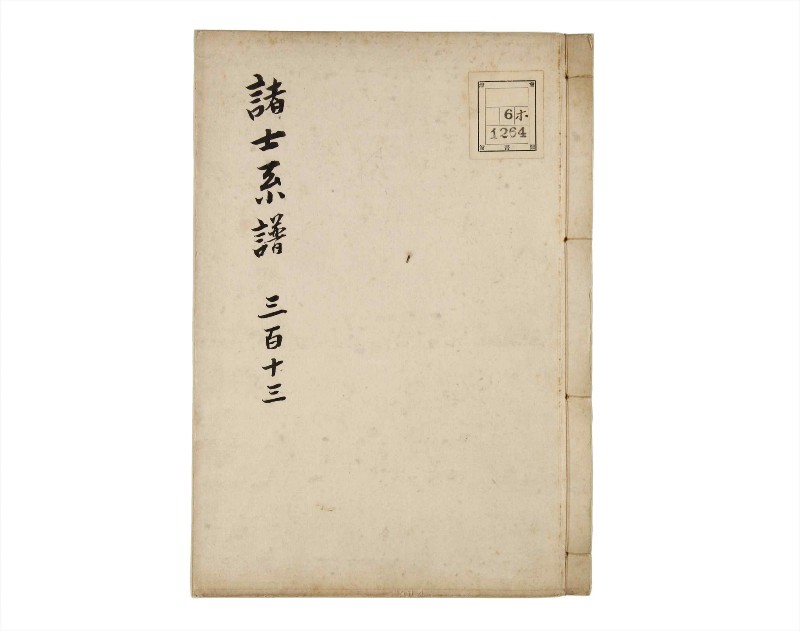 諸士系譜 三百十三
6 ホ
1264